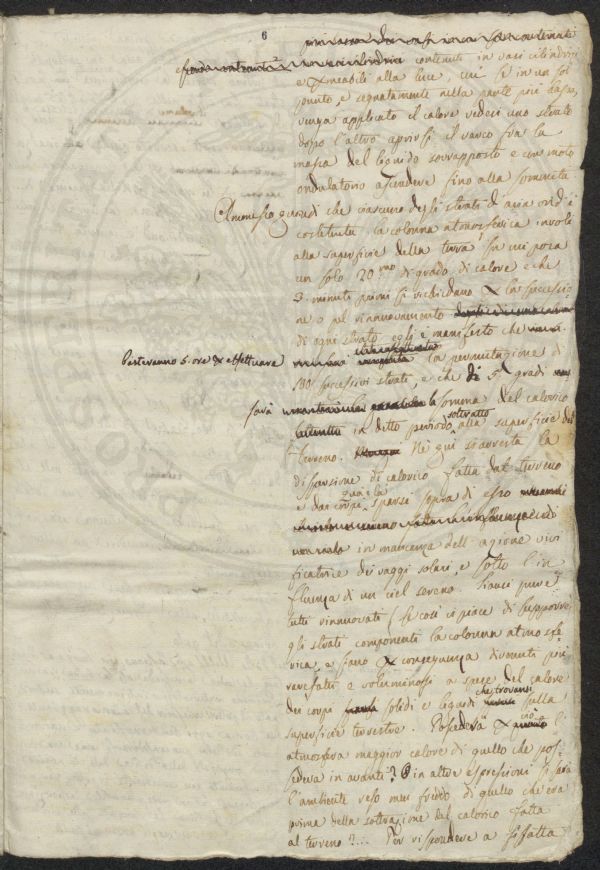 6
contenuti in vasi cilindrici
e permeabili alla luce, cui se in un sol
punto, e segnatamente nella parte più bassa,
venga applicato il calore vedesi uno strato
dopo l'altro aprirsi il varco fra la
massa del liquido sovrapposto e con moto
ondulatorio ascendere fino alla sommità
Ammesso quindi che ciascuno degli strati di aria ond'è
costituita la colonna atmosferica involi
alla superficie della terra in un'ora
un solo 20mo di grado di calore e che
3 minuti primi si richiedano per la successio-
ne o pel rinnovamento
di ogni strato egli è manifesto che
Basteranno 5 ore per effettuare la permutazione di
100 successivi strati, e che di 5 gradi
sarà la somma del calorico
in ditto periodo sottratto alla superficie del
terreno. Nè qui s'arresta la
dispersione di calorico fatta dal terreno
e dai corpi qua e là sparsi sopra di esso
in mancanza dell'azione vivi
ficatrice dei raggi solari, e sotto l'in
fluenza di un ciel sereno. Siansi pure
tutti rinnovati (se così ci piace di supporre
gli strati componenti la colonna atmosfe
rica, e siano per conseguenza divenuti più
rarefatti e voluminosi a spese del calore
dei corpi solidi e liquidi che trovansi sulla
superficie terrestre. Possederà per ciò l'
atmosfera maggior calore di quello che pos-
sedeva in avanti? O in altre espressioni si sarà
l'ambiente reso men freddo di quello che era
prima della sottrazione del calorico fatta
al terreno?... Per rispondere a sì fatta